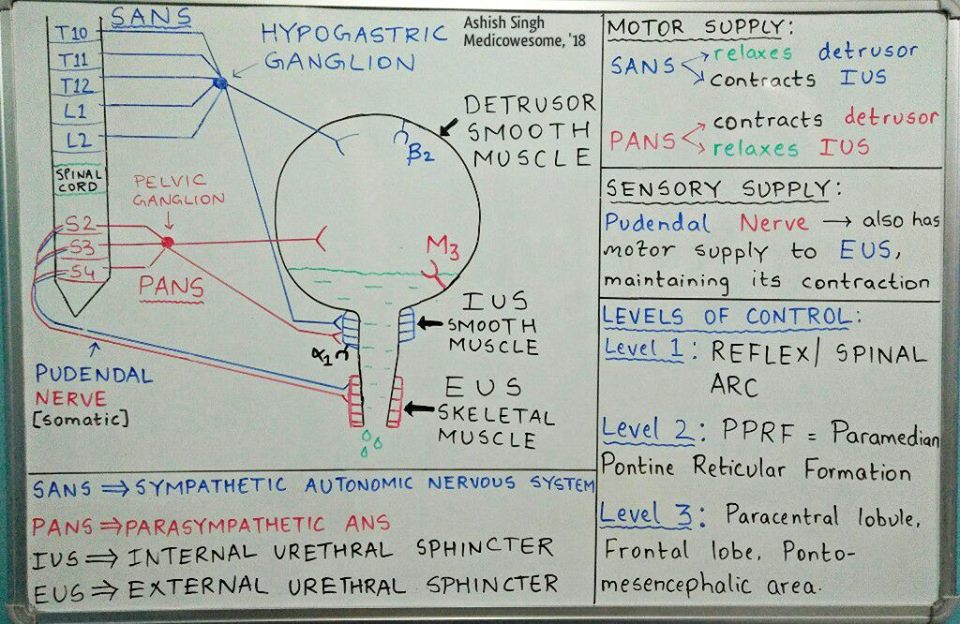 SANS
T10
T11
T12
L1
L2
SPINAL
CORD
S2
S3
S4
HYPOGASTRIC
GANGLION
Ashish Singh
Medicowesome, '18
DETRUSOR
SMOOTH
MUSCLE
β2
PELVIC
GANGLION
PANS
M3
IUS
SMOOTH
MUSCLE
α1
EUS
SKELETAL
MUSCLE
PUDENDAL
NERVE
[somatic]
SANS ⇒ SYMPATHETIC AUTONOMIC NERVOUS SYSTEM
PANS ⇒ PARASYMPATHETIC ANS
IUS ⇒ INTERNAL URETHRAL SPHINCTER
EUS ⇒ EXTERNAL URETHRAL SPHINCTER
MOTOR SUPPLY:
relaxes detrusor
SANS
contracts IUS
contracts detrusor
PANS
relaxes IUS
SENSORY SUPPLY:
Pudendal Nerve → also has
motor supply to EUS,
maintaining its contraction
LEVELS OF CONTROL:
Level 1: REFLEX/ SPINAL
ARC
Level 2: PPRF = Paramedian
Pontine Reticular Formation
Level 3: Paracentral lobule,
Frontal lobe, Ponto-
mesencephalic area.